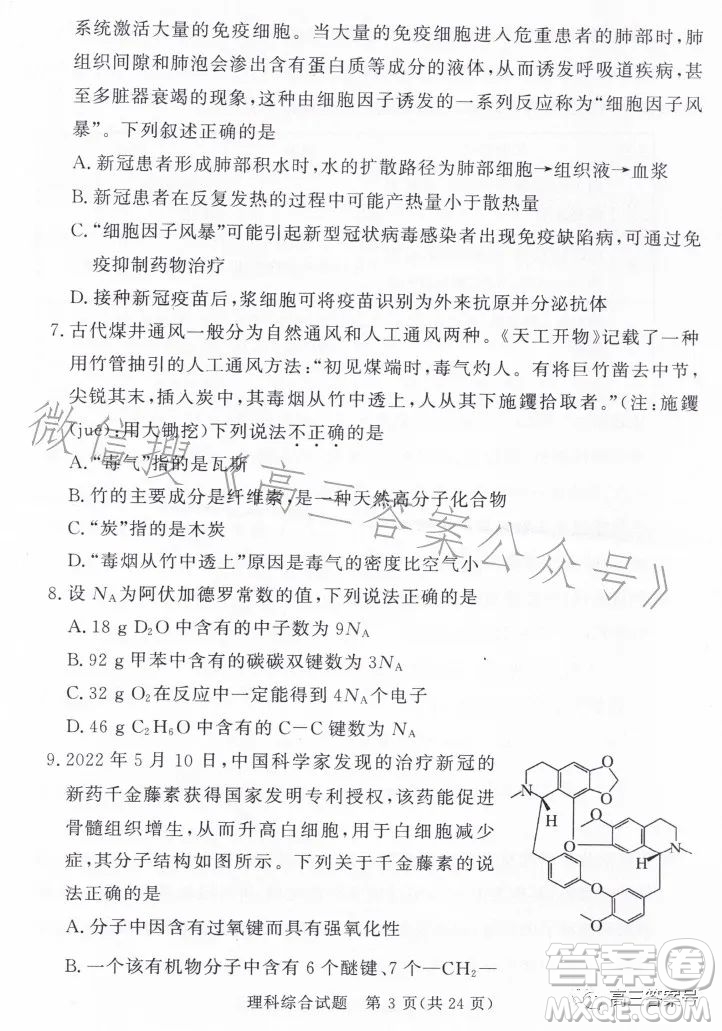 系统激活大量的免疫细胞。当大量的免疫细胞进入危重患者的肺部时，肺
组织间隙和肺泡会渗出含有蛋白质等成分的液体，从而诱发呼吸道疾病，甚
至多脏器衰竭的现象，这种由细胞因子诱发的一系列反应称为“细胞因子风
暴”。下列叙述正确的是
A.新冠患者形成肺部积水时，水的扩散路径为肺部细胞→组织液→血浆
B.新冠患者在反复发热的过程中可能产热量小于散热量
C.“细胞因子风暴”可能引起新型冠状病毒感染者出现免疫缺陷病，可通过免
疫抑制药物治疗
D.接种新冠疫苗后，浆细胞可将疫苗识别为外来抗原并分泌抗体
7.古代煤井通风一般分为自然通风和人工通风两种。《天工开物》记载了一种
用竹管抽引的人工通风方法：“初见煤端时，毒气灼人。有将巨竹凿去中节，
尖锐其末，插入炭中，其毒烟从竹中透上，人从其下施䦆拾取者。”（注：施䦆
(jué)，用大锄挖）下列说法不正确的是
A.“毒气”指的是瓦斯
B.竹的主要成分是纤维素，是一种天然高分子化合物
C.“炭”指的是木炭
D.“毒烟从竹中透上”原因是毒气的密度比空气小
8.设 NA为阿伏加德罗常数的值，下列说法正确的是
A.18 g D2O中含有的中子数为 9NA
B.92 g 甲苯中含有的碳碳双键数为 3NA
C.32 g O2在反应中一定能得到 4NA个电子
D.46 g C2H6O中含有的 C—C 键数为 NA
9.2022 年 5 月 10 日，中国科学家发现的治疗新冠的
新药千金藤素获得国家发明专利授权，该药能促进
骨髓组织增生，从而升高白细胞，用于白细胞减少
症，其分子结构如图所示。下列关于千金藤素的说
法正确的是
N
H
O
O
O
MeO
H
N
O
MeO
A.分子中因含有过氧键而具有强氧化性
B.一个该有机物分子中含有 6 个醚键、7 个—CH2—
理科综合试题 第 3 页(共 24 页)
微信搜《高三答案公众号》
答案圈
高三答案号